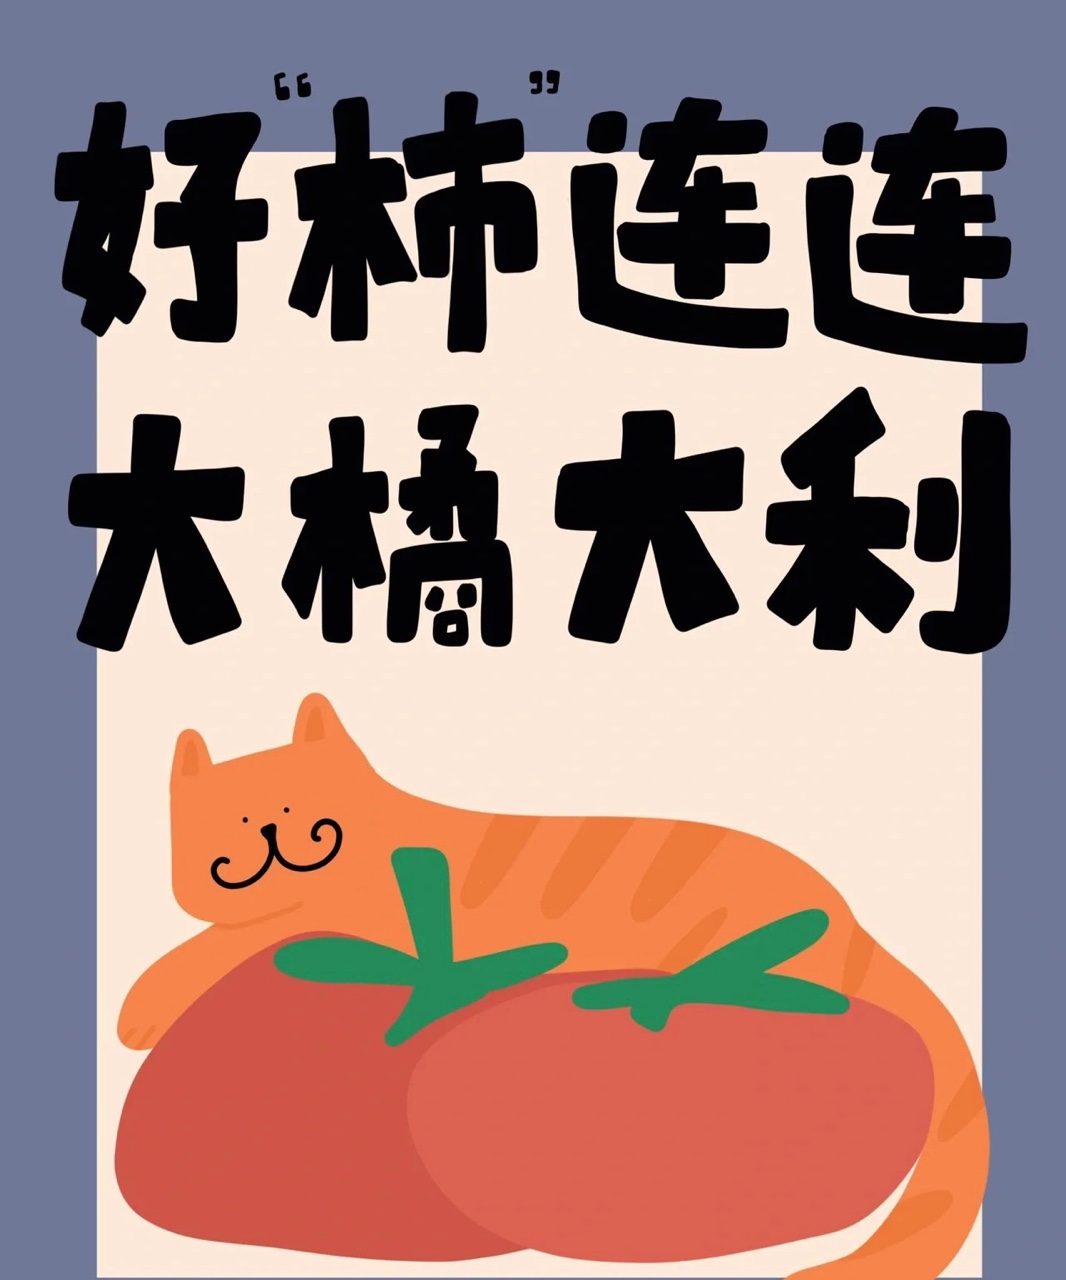 好“柿”连连
大橘大利